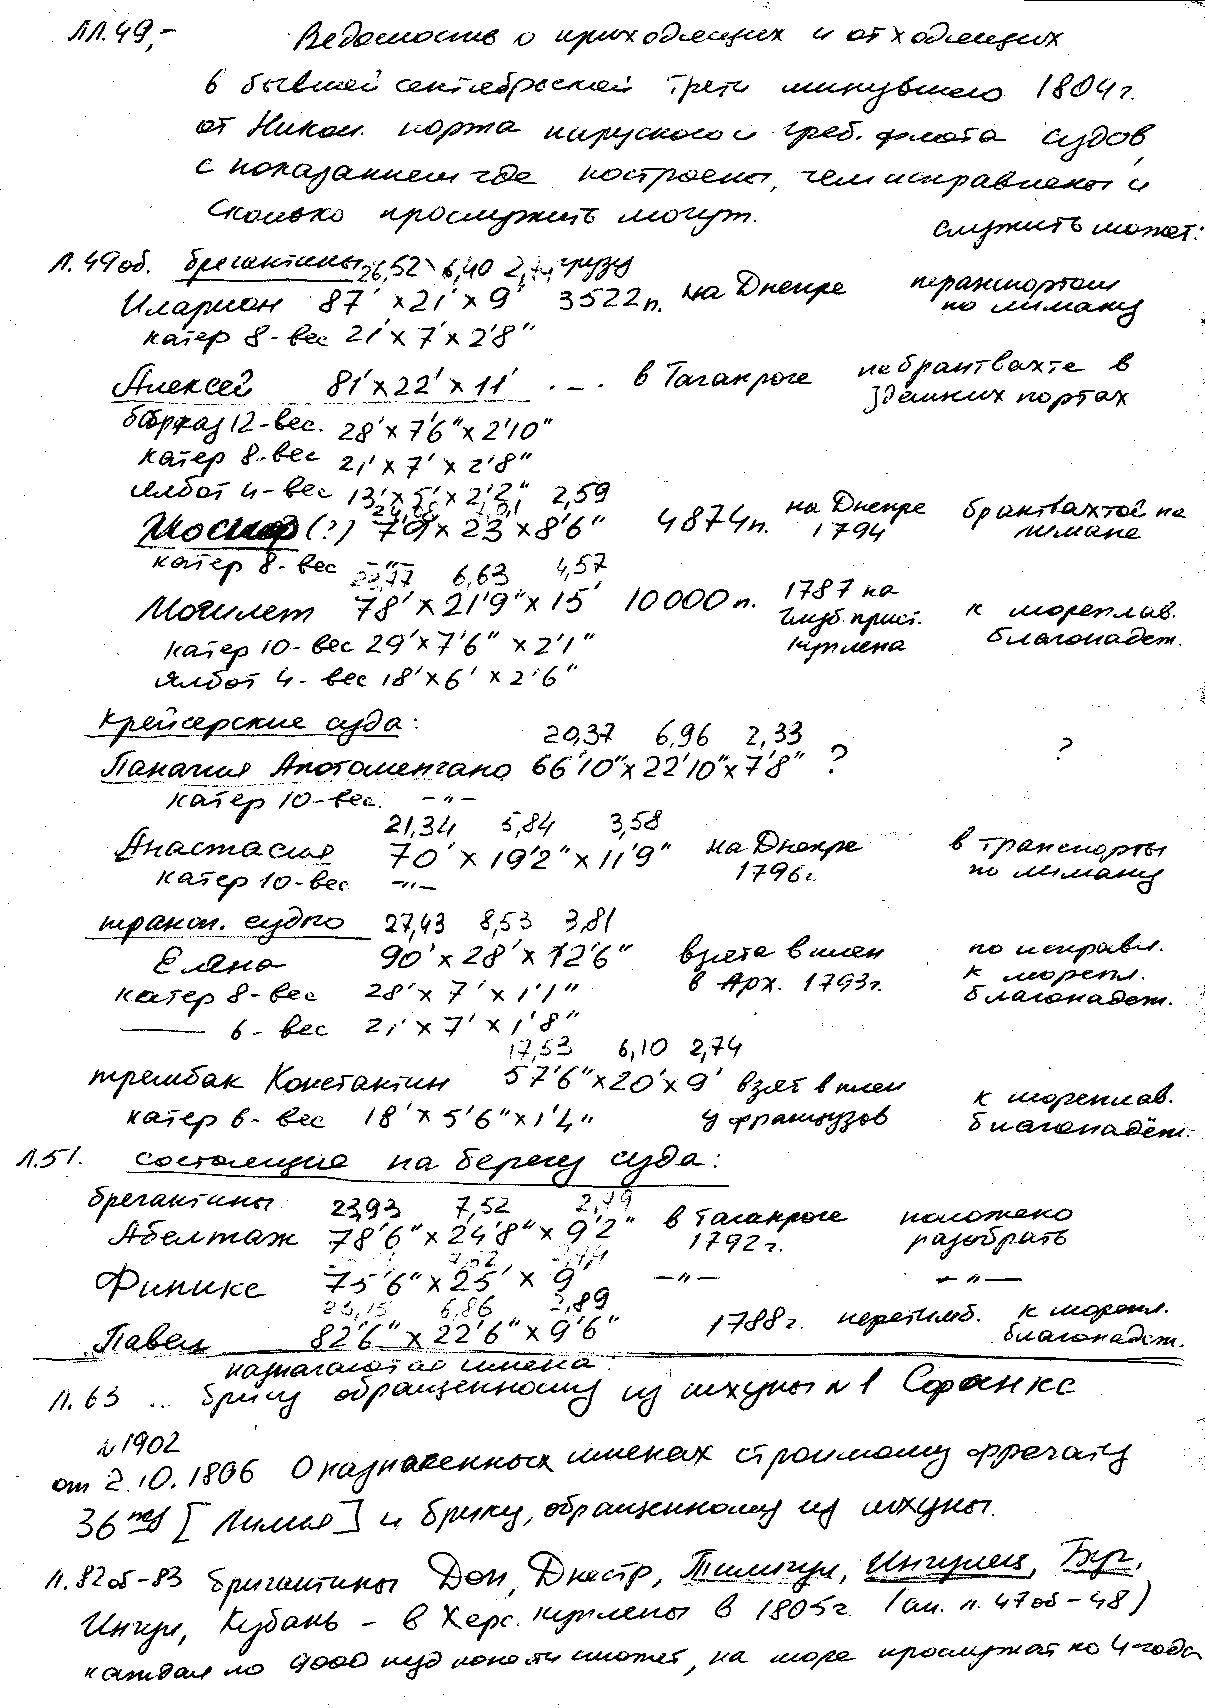 лл.49,- Ведомость о приходящих и отходящих
в бывшей сентябрьской трети минувшего 1804 г.
от Никол. порта парусного и греб. флота судов,
с показанием где построены, чем исправлены и
сколько прослужить могут.
служить может:
л.49об. бригантины 26,52 6,40 2,74 грузу
Иларион 87' x 21' x 9' 3522 п. на Днепре транспортом по лиману
катер 8-вес 21' x 7' x 2'8"
Алексей 81' x 22' x 11' . — . в Таганроге на брантвахте в здешних портах
барказ 12-вес. 28' x 7'6" x 2'10"
катер 8-вес 21' x 7' x 2'8"
ялбот 4-вес 13' x 5' x 2'2" 2,59
(?) 79' x 23 x 8'6" 4874 п. на Днепре 1794 брантвахтой на лимане
катер 8-вес —"—
23,77 6,63 4,57
Могилет 78' x 21'9" x 15' 10000 п. 1787 на Глуб. прист. куплена к мореплав. благонадеж.
катер 10-вес 29' x 7'6" x 2'1"
ялбот 4-вес 18' x 6' x 2'6"
крейсерские суда:
20,37 6,96 2,33
Панагия Апотоменгано 66'10" x 22'10" x 7'8" ? ?
катер 10-вес. —"—
21,34 5,84 3,58
Анастасия 70' x 19'2" x 11'9" на Днепре 1796 г. в транспорты по лиману
катер 10-вес —"—
трансп. судно 27,43 8,53 3,81
Елена 90' x 28' x 12'6" взята в плен в Арх. 1793 г. по исправл. к морепл. благонадеж.
катер 8-вес 28' x 7' x 1'1"
—— 6-вес 21' x 7' x 1'8"
17,53 6,10 2,74
трембак Константин 57'6" x 20' x 9' взят в плен у французов к мореплав. благонадёж.
катер 6-вес 18' x 5'6" x 1'4"
л.51. состоящие на берегу суда:
бригантины 23,93 7,52 2,79
Абельтаж 78'6" x 24'8" x 9'2" в Таганроге 1792 г. положено разобрать
7,62 2,74
Финикс 75'6" x 25' x 9' —"— —"—
25,15 6,86 2,89
Павел 82'6" x 22'6" x 9'6" 1788 г. перетимб. к морепл. благонадеж.
назначаются имена:
л.63 .. бригу обращенному из шхуны N 1 Сфинкс
N 1902
от 2.10.1806 О назначенных именах строимому фрегату
36 пуш [Лилия] и бригу, обращенному из шхуны.
л.82об-83 бригантины Дон, Днестр, Тилигул, Ингулец, Буг,
Ингул, Кубань - в Херс. куплены в 1805 г. (см. л. 47об-48)
каждая по 9000 пуд поднять может, на море прослужат по 4 года